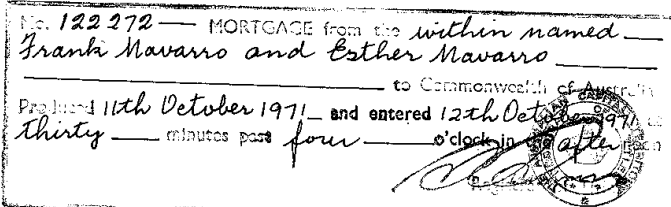 No. 122 272 — MORTGAGE from the within named —
Frank Mavarro and Esther Mavarro
to Commonwealth of Australia
Produced 11th October 1971 and entered 12th October 1971 at
thirty — minutes past four — o'clock in the after noon
Registrar